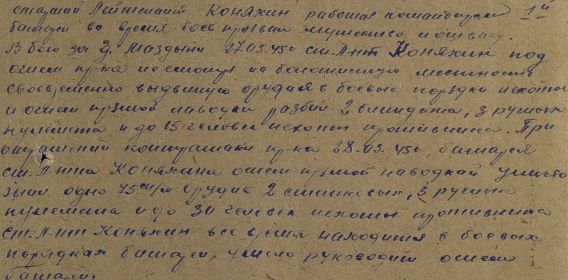 старший Лейтенант Коняхин работая командиром 1й
батареи во время боев проявил мужество и отвагу.
В бою за д. Маздыни 27.03.45г ст. Л-нт Коняхин под
огнем пр-ка несмотря на болотистую местность
своевременно выдвинул орудия в боевые порядки пехоты
и огнем прямой наводки разбил 2 блиндажа, 3 ручных
пулемета и до 15 человек пехоты противника. При
отражении контратаки пр-ка 28.03.45г, батарея
ст. Л-нта Коняхина огнем прямой наводкой уничто
жил одно 75 м/м орудие 2 станковых, 3 ручных
пулемета и до 30 человек пехоты противника
ст. Л-нт Коняхин все время находится в боевых
порядках батареи, умело руководит огнем
батареи.